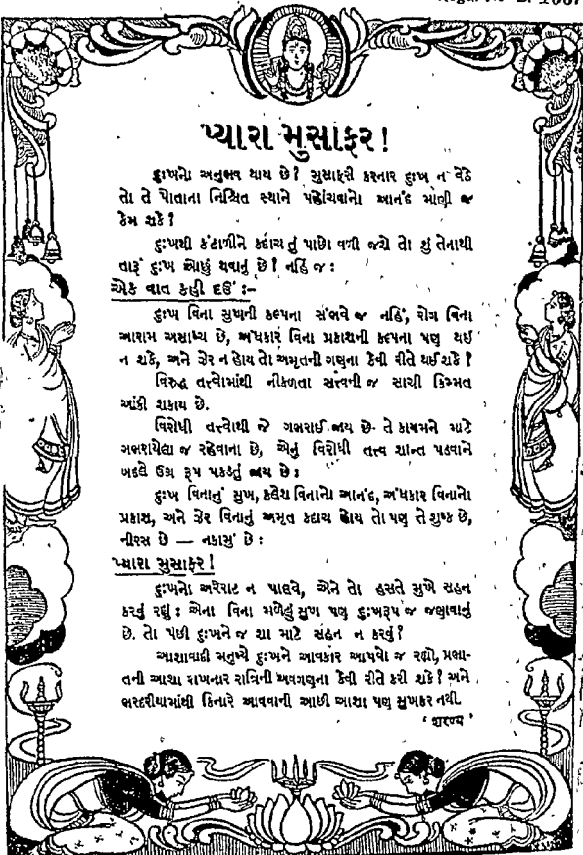 પ્યારા મુસાફર!
દુઃખનો અનુભવ થાય છે? મુસાફરી કરનાર દુઃખ ન વેઠે
તો તે પોતાના નિશ્ચિત સ્થાને પહોંચવાનો આનંદ માણી જ
કેમ શકે?
દુઃખથી કંટાળીને કદાચ તું પાછો વળી જશે તો શું તેનાથી
તારૂં દુઃખ ઓછું થવાનું છે? નહિં જ:
એક વાત કહી દઉં:–
દુઃખ વિના સુખની કલ્પના સંભવે જ નહિં, રોગ વિના
આરામ અસાધ્ય છે, અંધકાર વિના પ્રકાશની કલ્પના પણ થઈ
ન શકે, અને ઝેર ન હોય તો અમૃતની ગણના કેવી રીતે થઈ શકે?
વિરુદ્ધ તત્ત્વોમાંથી નીકળતા સત્ત્વની જ સાચી કિમ્મત
આંકી શકાય છે.
વિરોધી તત્ત્વોથી જે ગભરાઈ જાય છે તે કાયમને માટે
ગભરાયેલા જ રહેવાના છે, એનું વિરોધી તત્ત્વ શાન્ત પડવાને
બદલે ઉગ્ર રૂપ પકડતું જાય છે:
દુઃખ વિનાનું સુખ, કલેશ વિનાનો આનંદ, અંધકાર વિનાનો
પ્રકાશ, અને ઝેર વિનાનું અમૃત કદાચ હોય તો પણ તે શુષ્ક છે,
નીરસ છે — નકામું છે:
પ્યારા મુસાફર!
દુઃખનો અરેરાટ ન પાલવે, એને તો હસતે મુખે સહન
કરવું રહ્યું: એના વિના મળેલું સુખ પણ દુઃખરૂપ જ જણાવાનું
છે. તો પછી દુઃખને જ શા માટે સહન ન કરવું?
આશાવાદી મનુષ્યે દુઃખને આવકાર આપવો જ રહ્યો, પ્રભા-
તની આશા રાખનાર રાત્રિની અવગણના કેવી રીતે કરી શકે? અને
ભરદરીયામાંથી કિનારે આવવાની આછી આશા પણ સુખકર નથી.
'શરણ્ય'